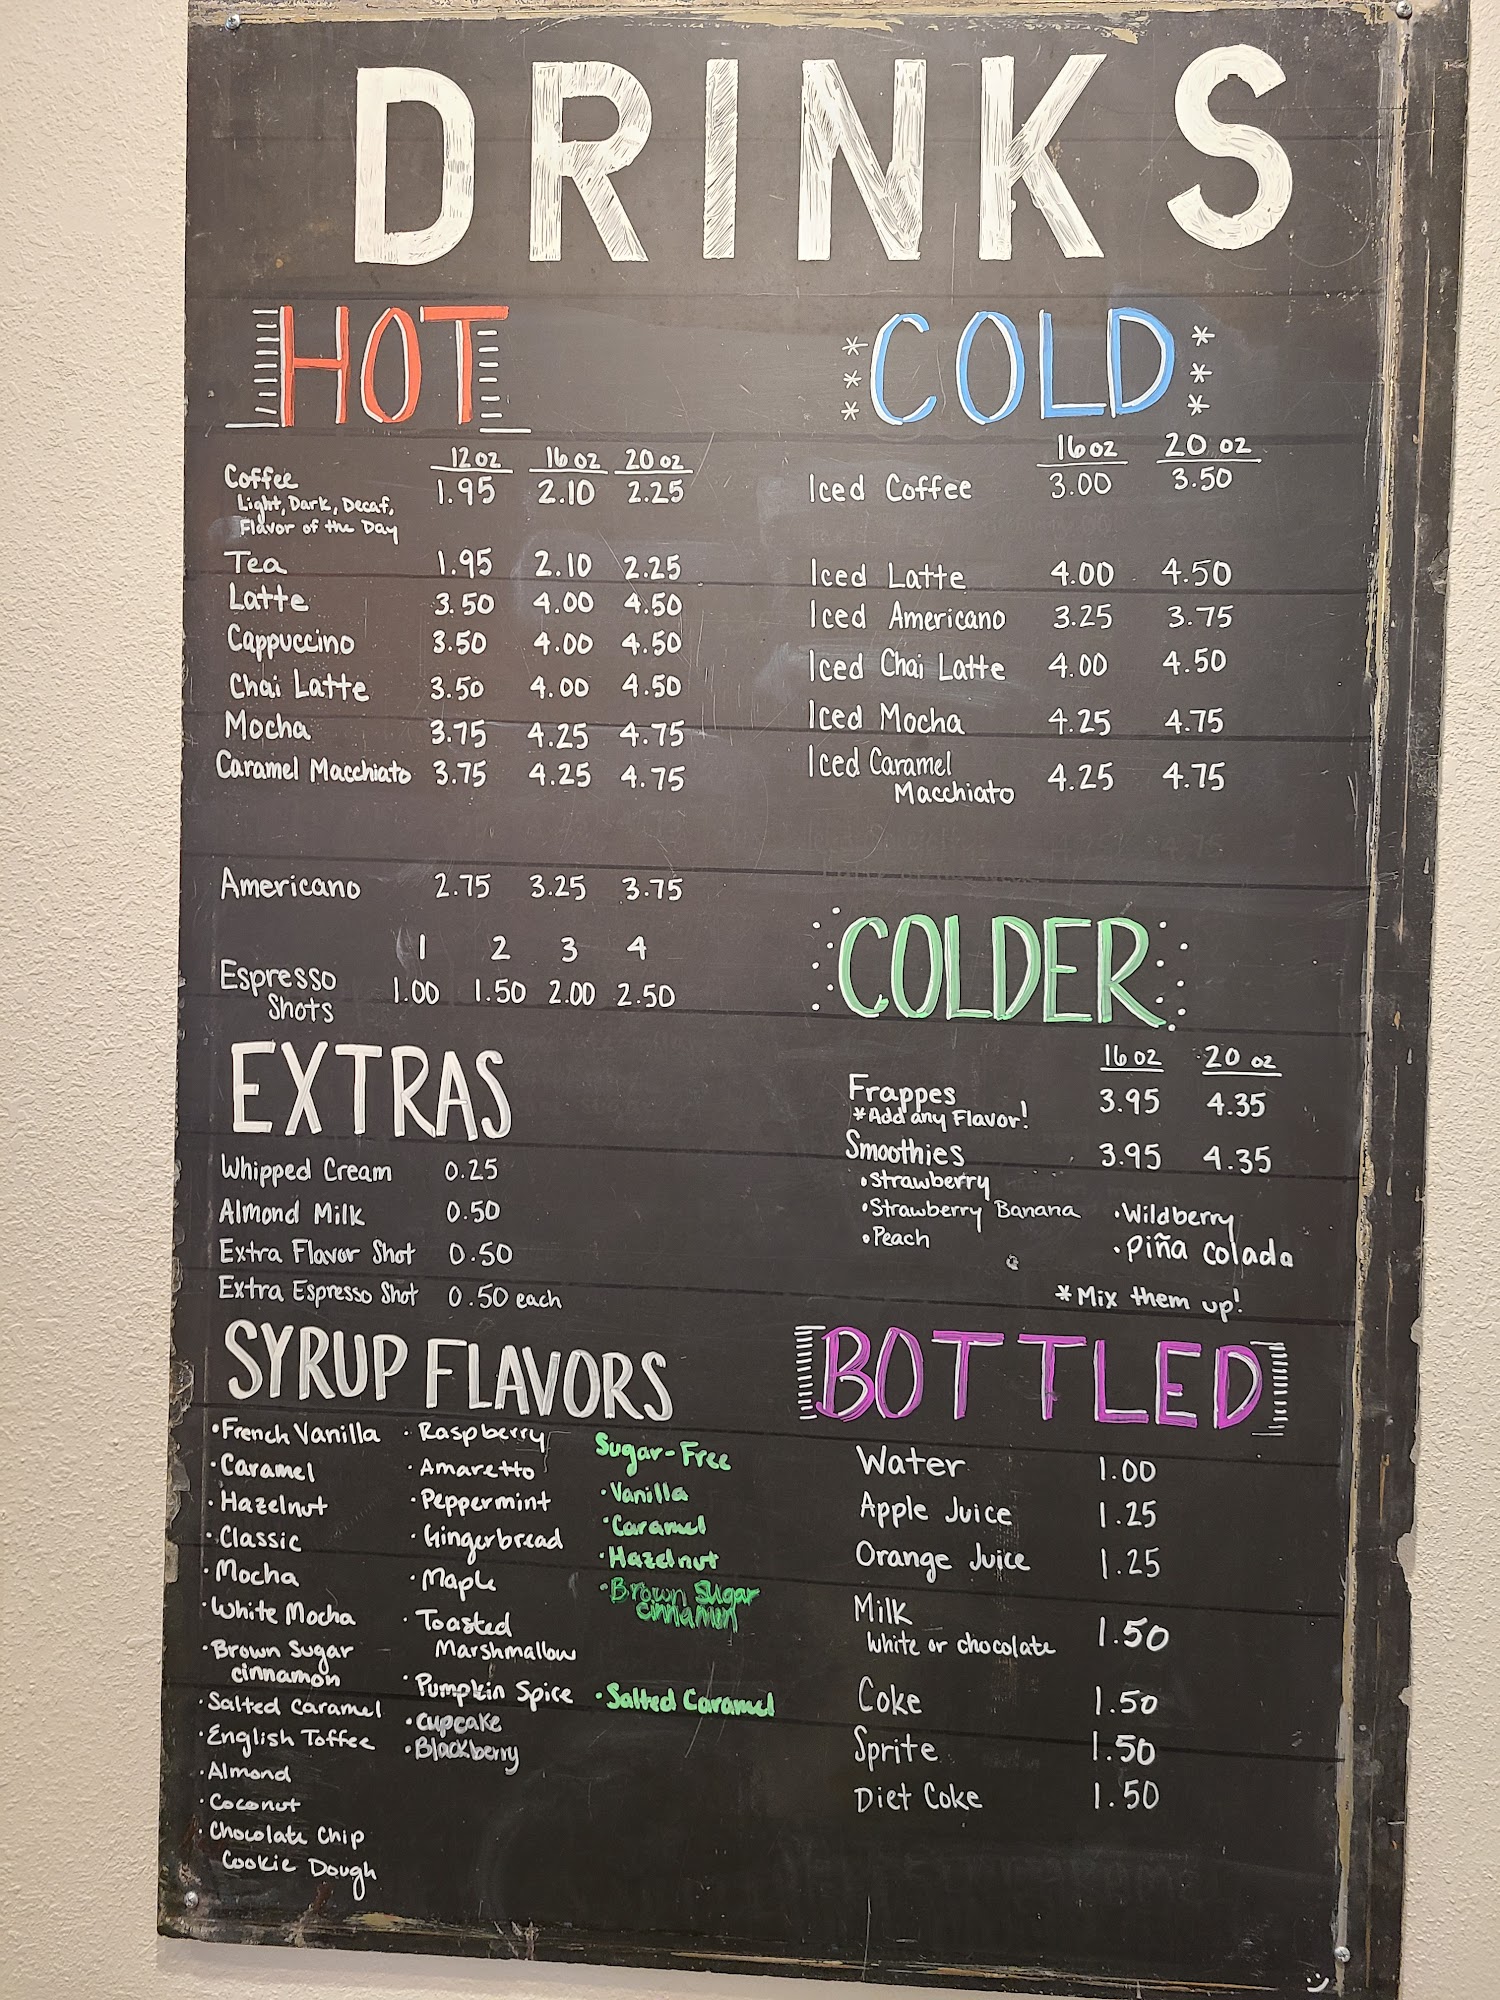 DRINKS
HOT
12 oz 16 oz 20 oz
Coffee 1.95 2.10 2.25
Light, Dark, Decaf,
Flavor of the Day
Tea 1.95 2.10 2.25
Latte 3.50 4.00 4.50
Cappuccino 3.50 4.00 4.50
Chai Latte 3.50 4.00 4.50
Mocha 3.75 4.25 4.75
Caramel Macchiato 3.75 4.25 4.75
Americano 2.75 3.25 3.75
1 2 3 4
Espresso
Shots 1.00 1.50 2.00 2.50
EXTRAS
Whipped Cream 0.25
Almond Milk 0.50
Extra Flavor Shot 0.50
Extra Espresso Shot 0.50 each
SYRUP FLAVORS
• French Vanilla
• Caramel
• Hazelnut
• Classic
• Mocha
• White Mocha
• Brown Sugar
cinnamon
• Salted Caramel
• English Toffee
• Almond
• Coconut
• Chocolate Chip
Cookie Dough
• Raspberry
• Amaretto
• Peppermint
• Gingerbread
• Maple
• Toasted
Marshmallow
• Pumpkin Spice
• Cupcake
• Blackberry
Sugar-Free
• Vanilla
• Caramel
• Hazelnut
• Brown Sugar
cinnamon
• Salted Caramel
COLD
16 oz 20 oz
Iced Coffee 3.00 3.50
Iced Latte 4.00 4.50
Iced Americano 3.25 3.75
Iced Chai Latte 4.00 4.50
Iced Mocha 4.25 4.75
Iced Caramel
Macchiato 4.25 4.75
COLDER
16 oz 20 oz
Frappes 3.95 4.35
*Add any Flavor!
Smoothies 3.95 4.35
• Strawberry
• Strawberry Banana
• Peach
• Wildberry
• Piña Colada
*Mix them up!
BOTTLED
Water 1.00
Apple Juice 1.25
Orange Juice 1.25
Milk
White or chocolate 1.50
Coke 1.50
Sprite 1.50
Diet Coke 1.50